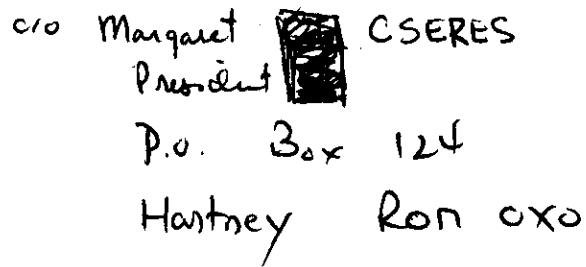 c/o Margaret CSERES
President
P.O. Box 124
Hartney R0M 0X0